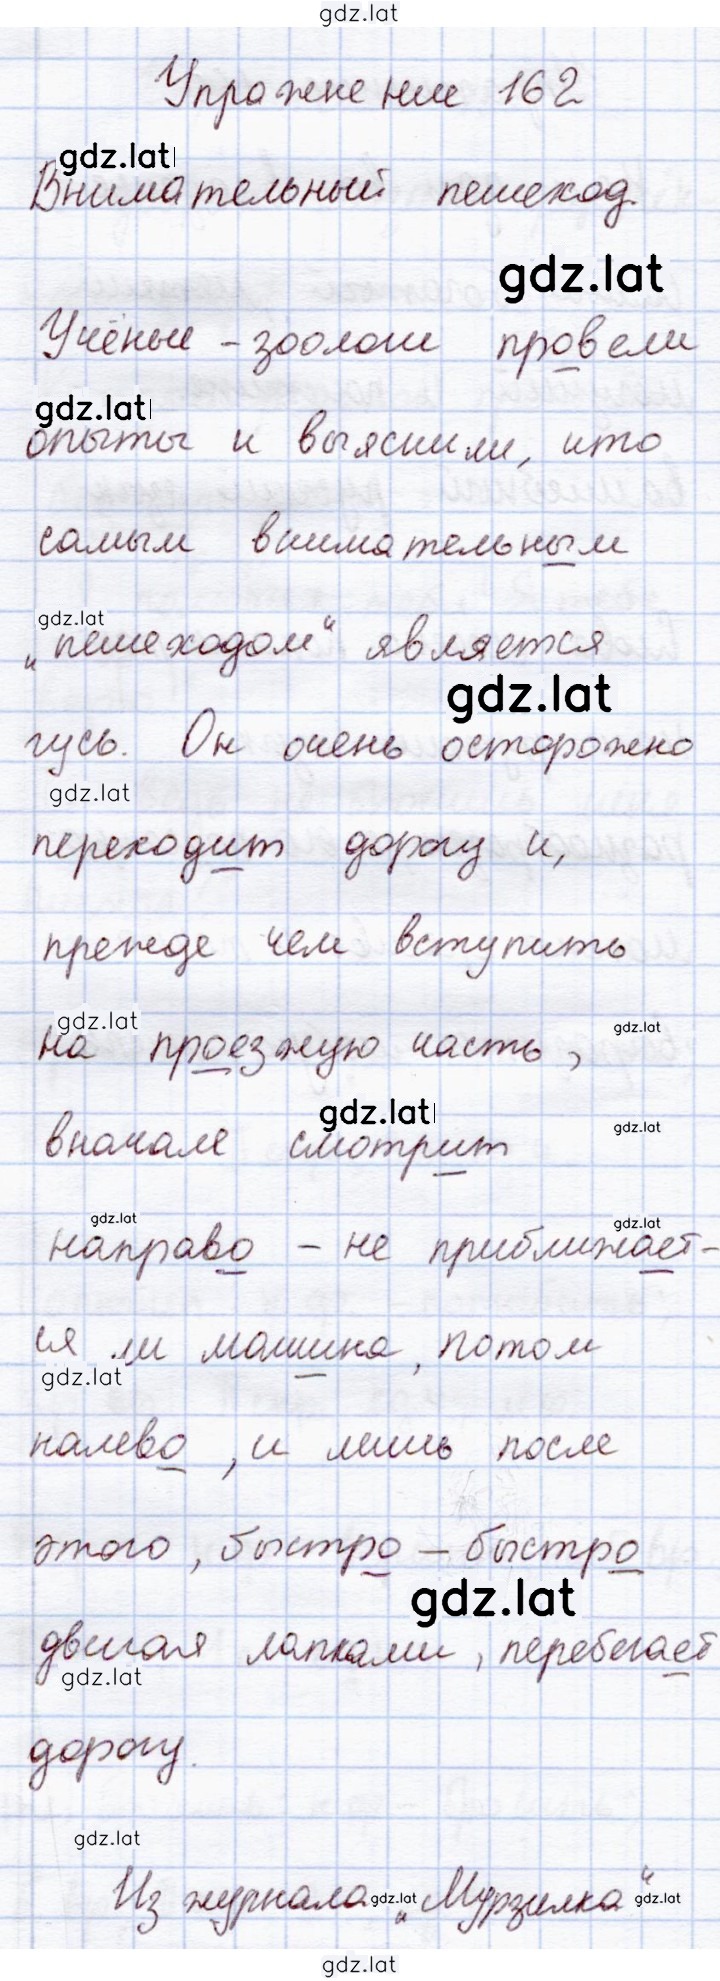 gdz.lat
Упражнение 162
gdz.lat
Внимательный пешеход.
gdz.lat
Учёные - зоологи провели
gdz.lat
опыты и выяснили, что
самым внимательным
gdz.lat
„пешеходом“ является
gdz.lat
гусь. Он очень осторожно
gdz.lat
переходит дорогу и,
прежде чем вступить
gdz.lat gdz.lat
на проезжую часть,
gdz.lat gdz.lat
вначале смотрит
gdz.lat gdz.lat
направо - не приближает-
ся ли машина, потом
gdz.lat
налево, и лишь после
этого, быстро - быстро
gdz.lat
двигая лапками, перебегает
gdz.lat
дорогу.
gdz.lat
Из журнала gdz.lat „Мурзилка“ gdz.lat
gdz.lat